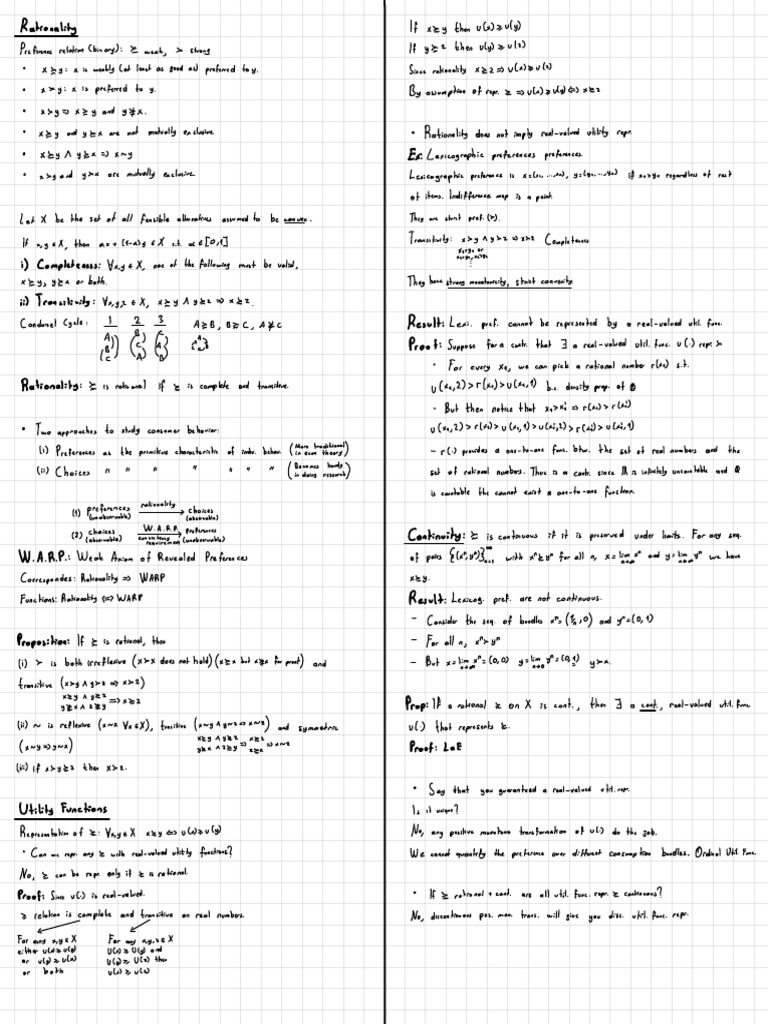 Rationality
Preference relation (binary): ≿ weak, ≻ strong
• x≿y: x is weakly (at least as good as) preferred to y.
• x≻y: x is preferred to y.
• x≻y ⇒ x≿y and y⋡x.
• x≿y and y≿x are not mutually exclusive
• x≿y ∧ y≿x ⇒ x~y
• x≻y and y≻x are mutually exclusive.
Let X be the set of all feasible alternatives assumed to be convex.
If x,y∈X, then αx + (1-α)y ∈ X s.t. α∈[0,1]
i) Completeness: ∀x,y∈X, one of the following must be valid,
x≿y, y≿x or both.
ii) Transitivity: ∀x,y,z ∈X, x≿y ∧ y≿z ⇒ x≿z.
Condorcet Cycle: 1 2 3 A≿B, B≿C, A⋡C
(A B C) (B C A) (C A B)
Rationality: ≿ is rational if ≿ is complete and transitive.
• Two approaches to study consumer behavior:
(i) Preferences as the primitive characteristic of indv. behav. (More traditional in econ theory)
(ii) Choices " " " " " " (Becomes handy in doing research)
(1) preferences (unobservable) rationality → choices (observable)
(2) choices (observable) W.A.R.P. consistency requirement → preferences (unobservable)
W.A.R.P.: Weak Axiom of Revealed Preferences
Correspondes: Rationality ⇒ WARP
Functions: Rationality ⇔ WARP
Proposition: If ≿ is rational, then
(i) ≻ is both irreflexive (x≻x does not hold) (x≿x but x⋡x for proof) and
transitive (x≻y ∧ y≻z ⇒ x≻z)
x≿y ∧ y≿z
y⋡x ∧ z⋡y ⇒ x≿z
(ii) ~ is reflexive (x~x ∀x∈X), trasitive (x~y ∧ y~z ⇒ x~z) and symmetric
(x~y ⇒ y~x) x≿y ∧ y≿z ⇒ x≿z
y≿x ∧ z≿y ⇒ z≿x ⇒ x~z
(iii) if x≻y≿z then x≻z.
Utility Functions
Representation of ≿: ∀x,y∈X x≿y ⇔ u(x)≥u(y)
• Can we repr. any ≿ with real-valued utility functions?
No, ≿ can be repr. only if ≿ is rational.
Proof: Since u(·) is real-valued.
≥ relation is complete and transitive on real numbers.
For any x,y∈X
either u(x)≥u(y)
or u(y)≥u(x)
or both
For any x,y,z∈X
U(x)≥U(y) and
U(y)≥U(z) then
u(x)≥u(z)
If x≿y then u(x)≥u(y)
If y≿z then u(y)≥u(z)
Since rationality x≿z ⇒ u(x)≥u(z)
By assumption of repr. ≿ ⇒ u(x)≥u(y) ⇔ x≿z
• Rationality does not imply real-valued utility repr.
Ex: Lexicographic preferences preferences
Lexicographic preference is x=(x₁,...,xₙ), y=(y₁,...,yₙ) if x₁>y₁ regardless of rest
of items. Indifference map is a point.
They are strict pref. (≻).
Transitivity: x≻y ∧ y≻z ⇒ x≻z Completeness
They have strong monotonicity, strict convexity.
Result: Lexi. pref. cannot be represented by a real-valued util. func.
Proof: Suppose for a contr. that ∃ a real-valued util. func. u(·) repr. ≿
• For every x₁, we can pick a rational number r(x₁) s.t.
u(x₁,2) > r(x₁) > u(x₁,1) b.c. density prop. of ℚ
• But then notice that x₁>x₁' ⇒ r(x₁)>r(x₁')
u(x₁,2)>r(x₁)>u(x₁,1)>u(x₁',2)>r(x₁')>u(x₁',1)
- r(·) provides a one-to-one func. btw. the set of real numbers and the
set of rational numbers. This is a contr. since ℝ is infinitely uncountable and ℚ
is countable the cannot exist a one-to-one function.
Continuity: ≿ is continuous if it is preserved under limits. For any seq.
of pairs {(xⁿ,yⁿ)}ₙ₌₁^∞ with xⁿ≿yⁿ for all n, x=lim xⁿ n→∞ and y=lim yⁿ n→∞ we have
x≿y.
Result: Lexicog. pref. are not continuous.
- Consider the seq. of bundles xⁿ=(1/n,0) and yⁿ=(0,1)
- For all n, xⁿ≻yⁿ
- But x=lim xⁿ n→∞ =(0,0) y=lim yⁿ n→∞ =(0,1) y≻x.
Prop: If a rational ≿ on X is cont., then ∃ a cont., real-valued util. func.
u(·) that represents ≿.
Proof:
• Say that you guaranteed a real-valued util. repr.
Is it unique?
No, any positive monotone transformation of u(·) do the job.
We cannot quantify the preference over different consumption bundles. Ordinal Util. Func.
• If ≿ rational + cont. are all util. func. repr. ≿ continuous?
No, discontinuous pos. mon. trans. will give you disc. util. func. repr.